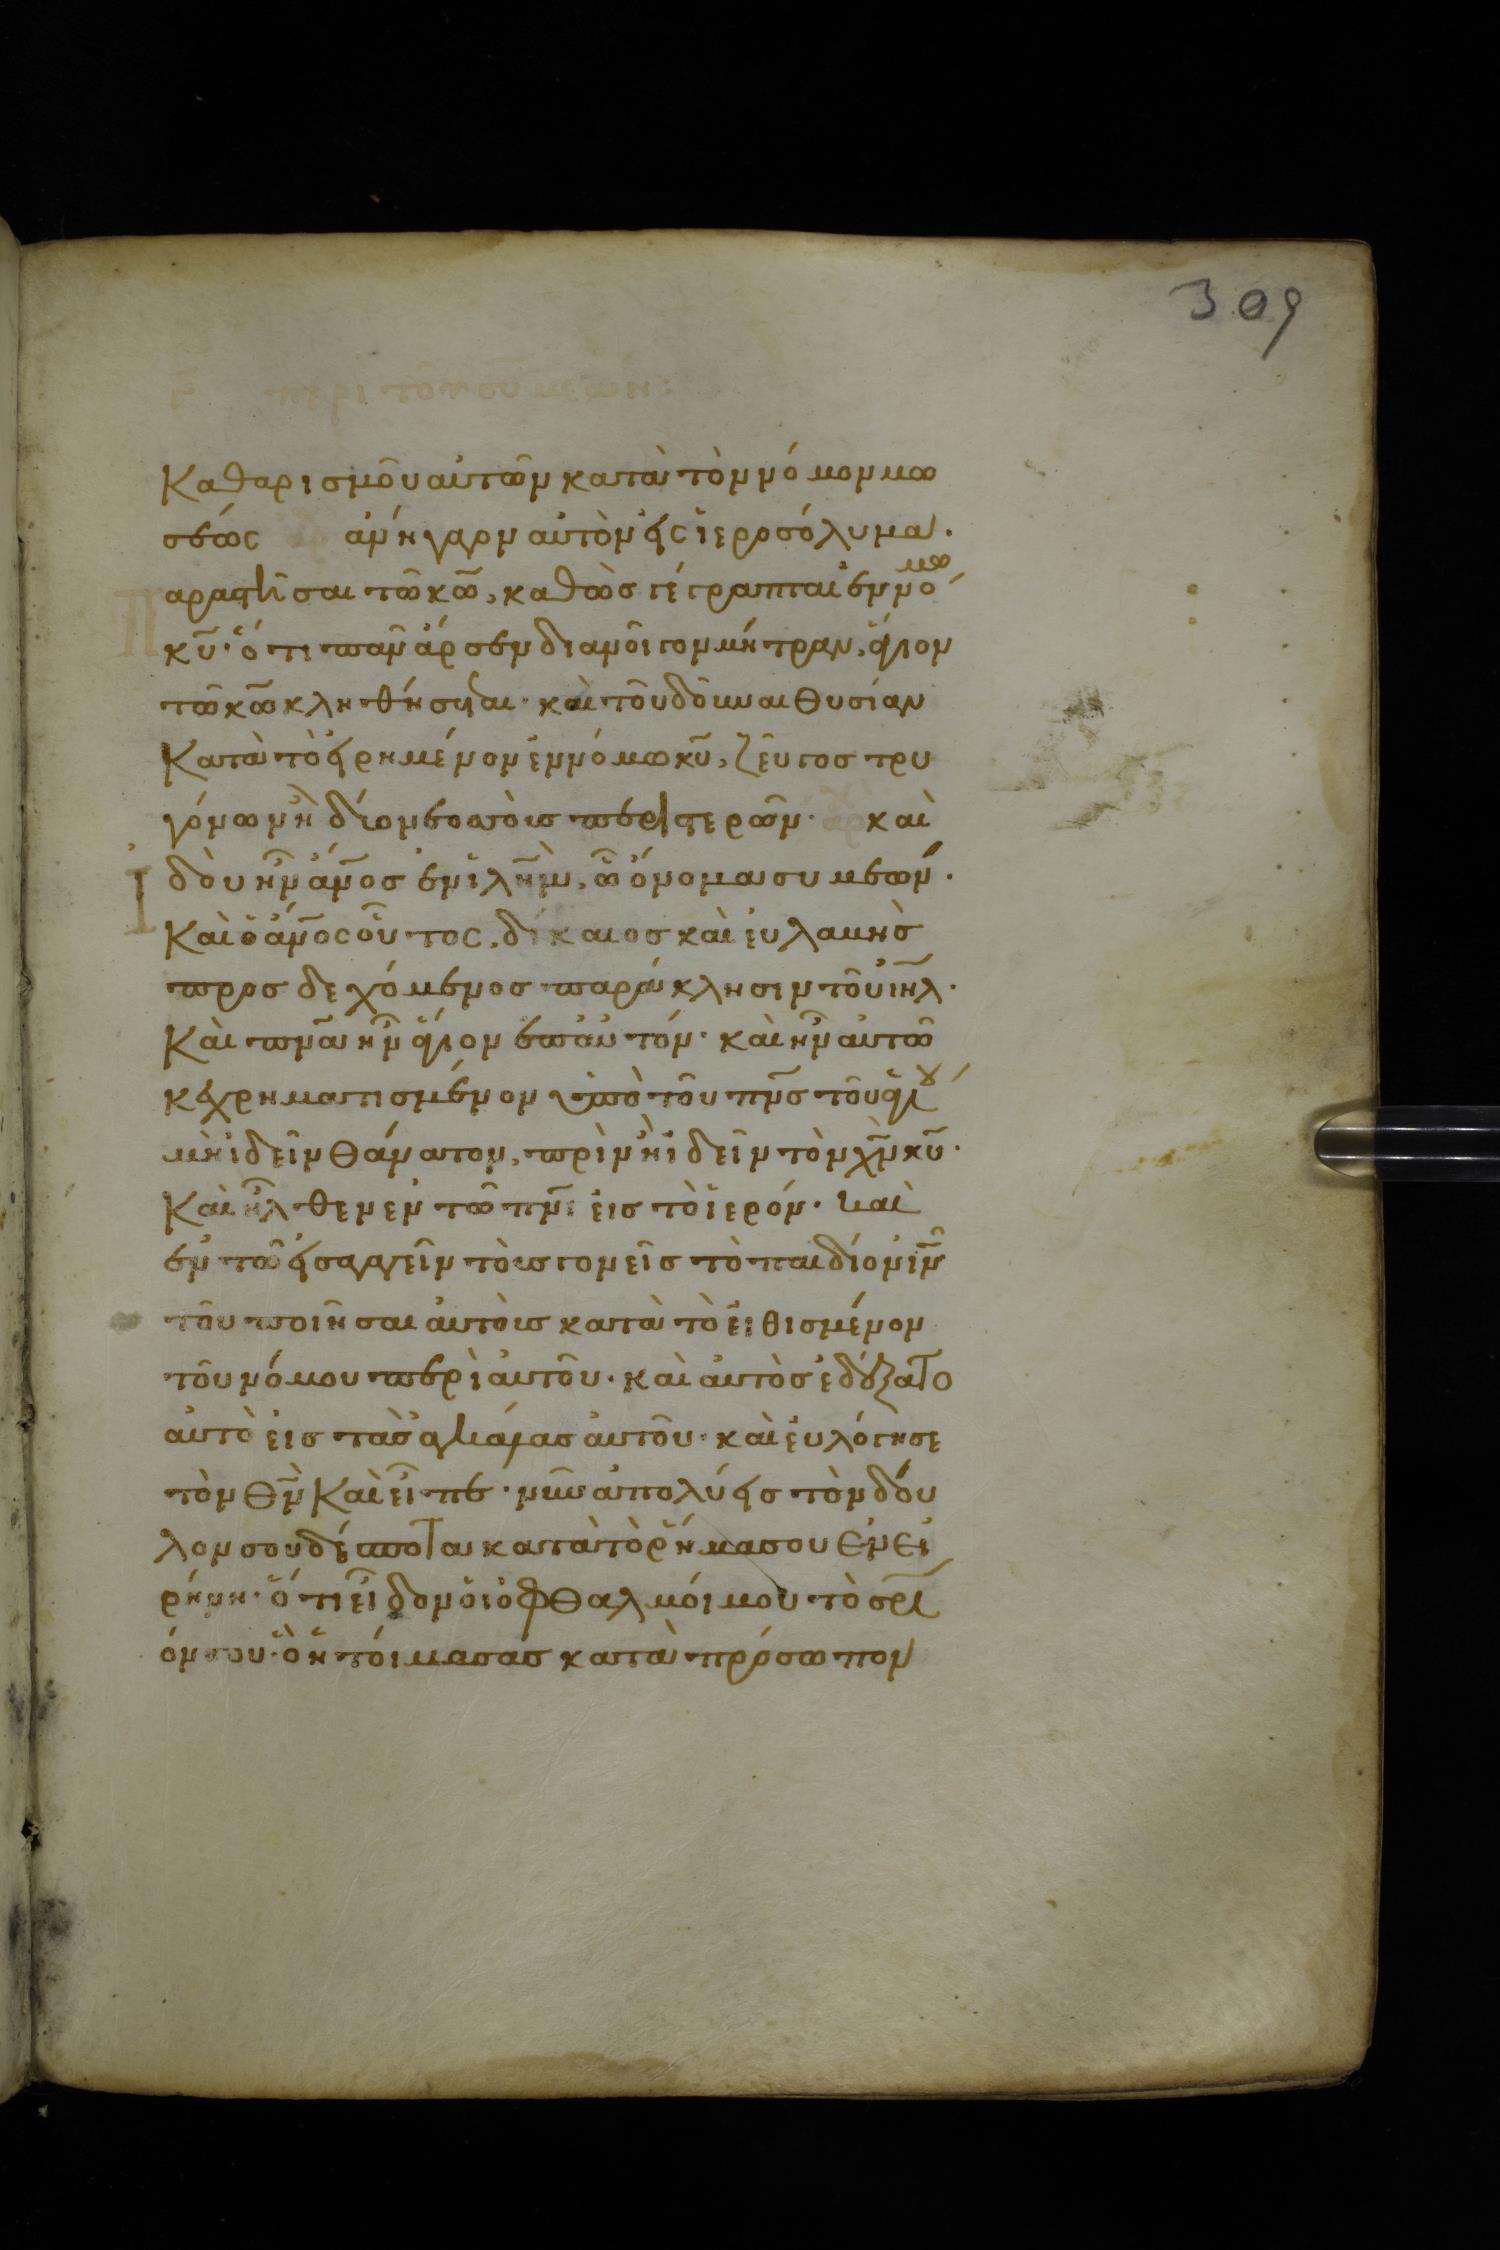 309
περὶ τοῦ συμεών:
καθαρισμοῦ αὐτῶν κατὰ τὸν νόμον μω
σέως ἀνήγαγον αὐτὸν εἰς ἱεροσόλυμα.
αραστῆσαι τῶ κ̅ω̅, καθὼς γέγραπται ἐν νόμω
κ̅υ̅· ὅτι πᾶν ἄρσεν διανοῖγον μήτραν, ἅγιον
τῶ κ̅ω̅ κληθήσεται· καὶ τοῦ δοῦναι θυσίαν
κατὰ τὸ εἰρημένον ἐν νόμω κ̅υ̅, ζεῦγος τρυ
γόνων ἢ δύο νεοσσοὺς περιστερῶν· καὶ
ἰδοὺ ἦν ἄν̅ο̅ς ἐν ἰλ̅η̅μ, ὧ ὄνομα συμεών.
καὶ ὁ ἄν̅ο̅ς οὗτος, δίκαιος καὶ εὐλαβὴς
προσδεχόμενος παράκλησιν τοῦ ἰη̅λ̅.
καὶ πν̅α̅ ἦν ἅγιον ἐπ' αὐτόν· καὶ ἦν αὐτῶ
κεχρηματισμένον ὑπὸ τοῦ πν̅ς̅ τοῦ ἁγίου
μὴ ἰδεῖν θάνατον, πρὶν ἢ ἰδεῖν τὸν χ̅ν̅ κ̅υ̅.
καὶ ἦλθεν ἐν τῶ πν̅ι̅ εἰς τὸ ἱερόν· καὶ
ἐν τῶ εἰσαγαγεῖν τοὺς γονεῖς τὸ παιδίον ι̅ν̅
τοῦ ποιῆσαι αὐτοὺς κατὰ τὸ εἰθισμένον
τοῦ νόμου περὶ αὐτοῦ· καὶ αὐτὸς ἐδέξατο
αὐτὸ εἰς τὰς ἀγκάλας αὐτοῦ· καὶ εὐλόγησε
τὸν θ̅ν̅ καὶ εἶπε· νῦν ἀπολύεις τὸν δοῦ
λον σου δέσποτα κατὰ τὸ ῥῆμα σου ἐν εἰ
ρήνη· ὅτι εἶδον οἱ ὀφθαλμοί μου τὸ σρ̅ι
όν σου· ὃ ἡτοίμασας κατὰ πρόσωπον